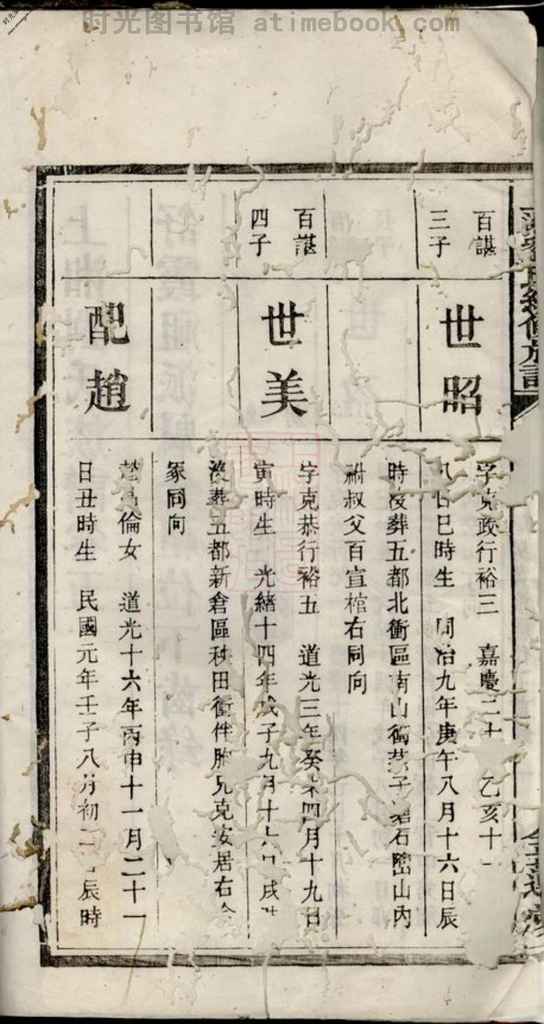 时光图书馆 - atimebook.com -
百諶
三子
世昭
字克政行裕三 嘉慶二十 乙亥十
八 巳時生 同治九年庚午八月十六日辰
時沒葬五都北衝區南山衝 子 石 山內
祔叔父百宣棺右同向
百諶
四子
世美
字克恭行裕五 道光三年癸未四月十九日
寅時生 光緒十四年戊子九月十 日戌
沒葬五都新倉區秧田衝伴胞兄克安居右
冢同向
配趙
倫女 道光十六年丙申十一月二十一
日丑時生 民國元年壬子八月初二 辰時